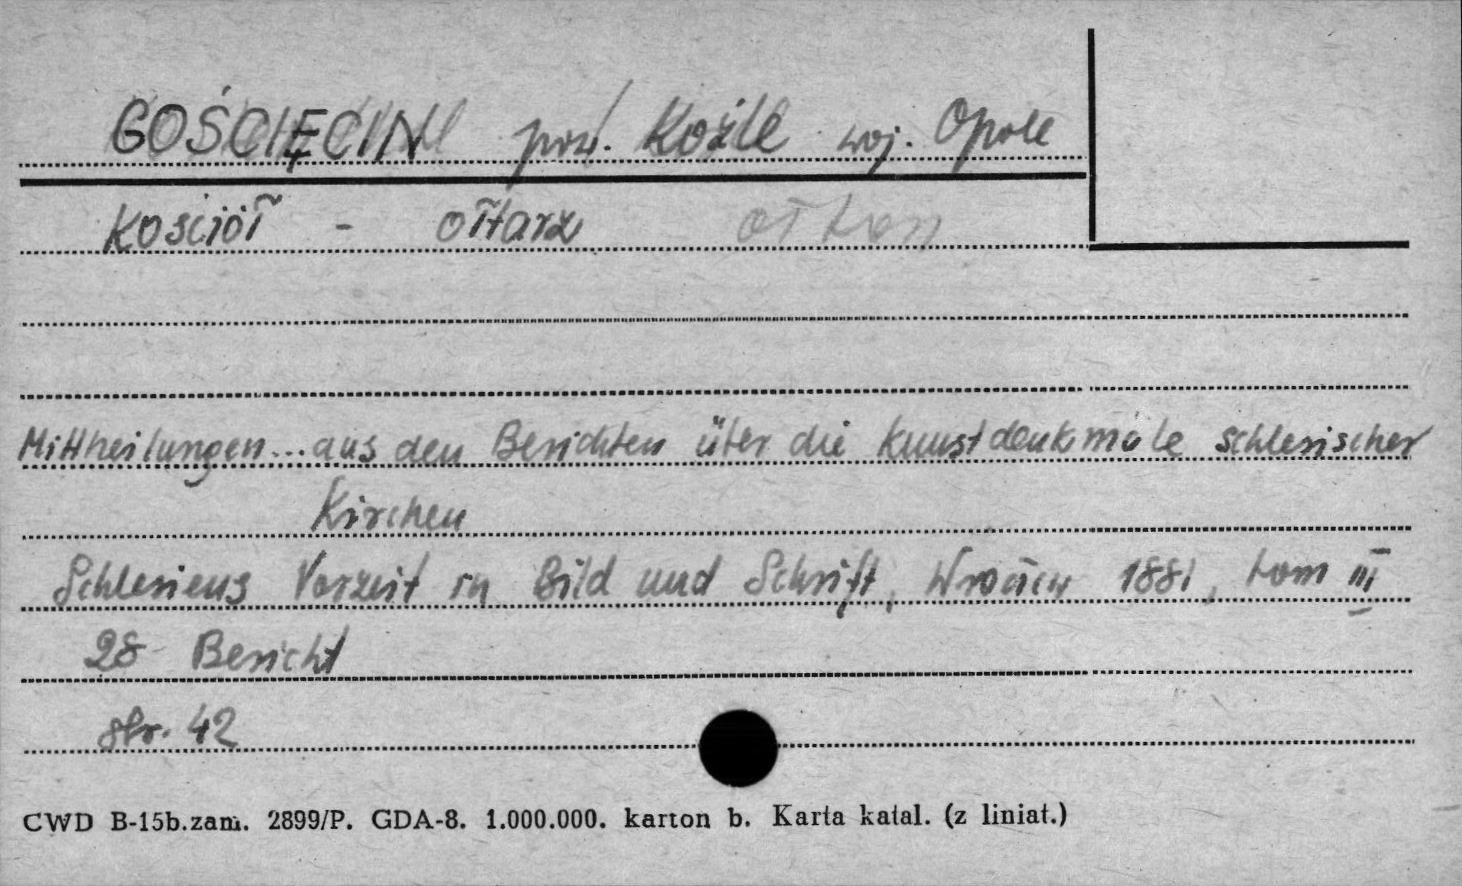 GOŚCIĘCIN pow. Koźle woj. Opole
Kościół - ołtarz
Mittheilungen...aus den Berichten über die Kunstdenkmale schlesischer
Kirchen
Schlesiens Vorzeit in Bild und Schrift, Wrocław 1881, tom III
28 Bericht
str. 42
CWD B-15b.zam. 2899/P. GDA-8. 1.000.000. karton b. Karta katal. (z liniat.)